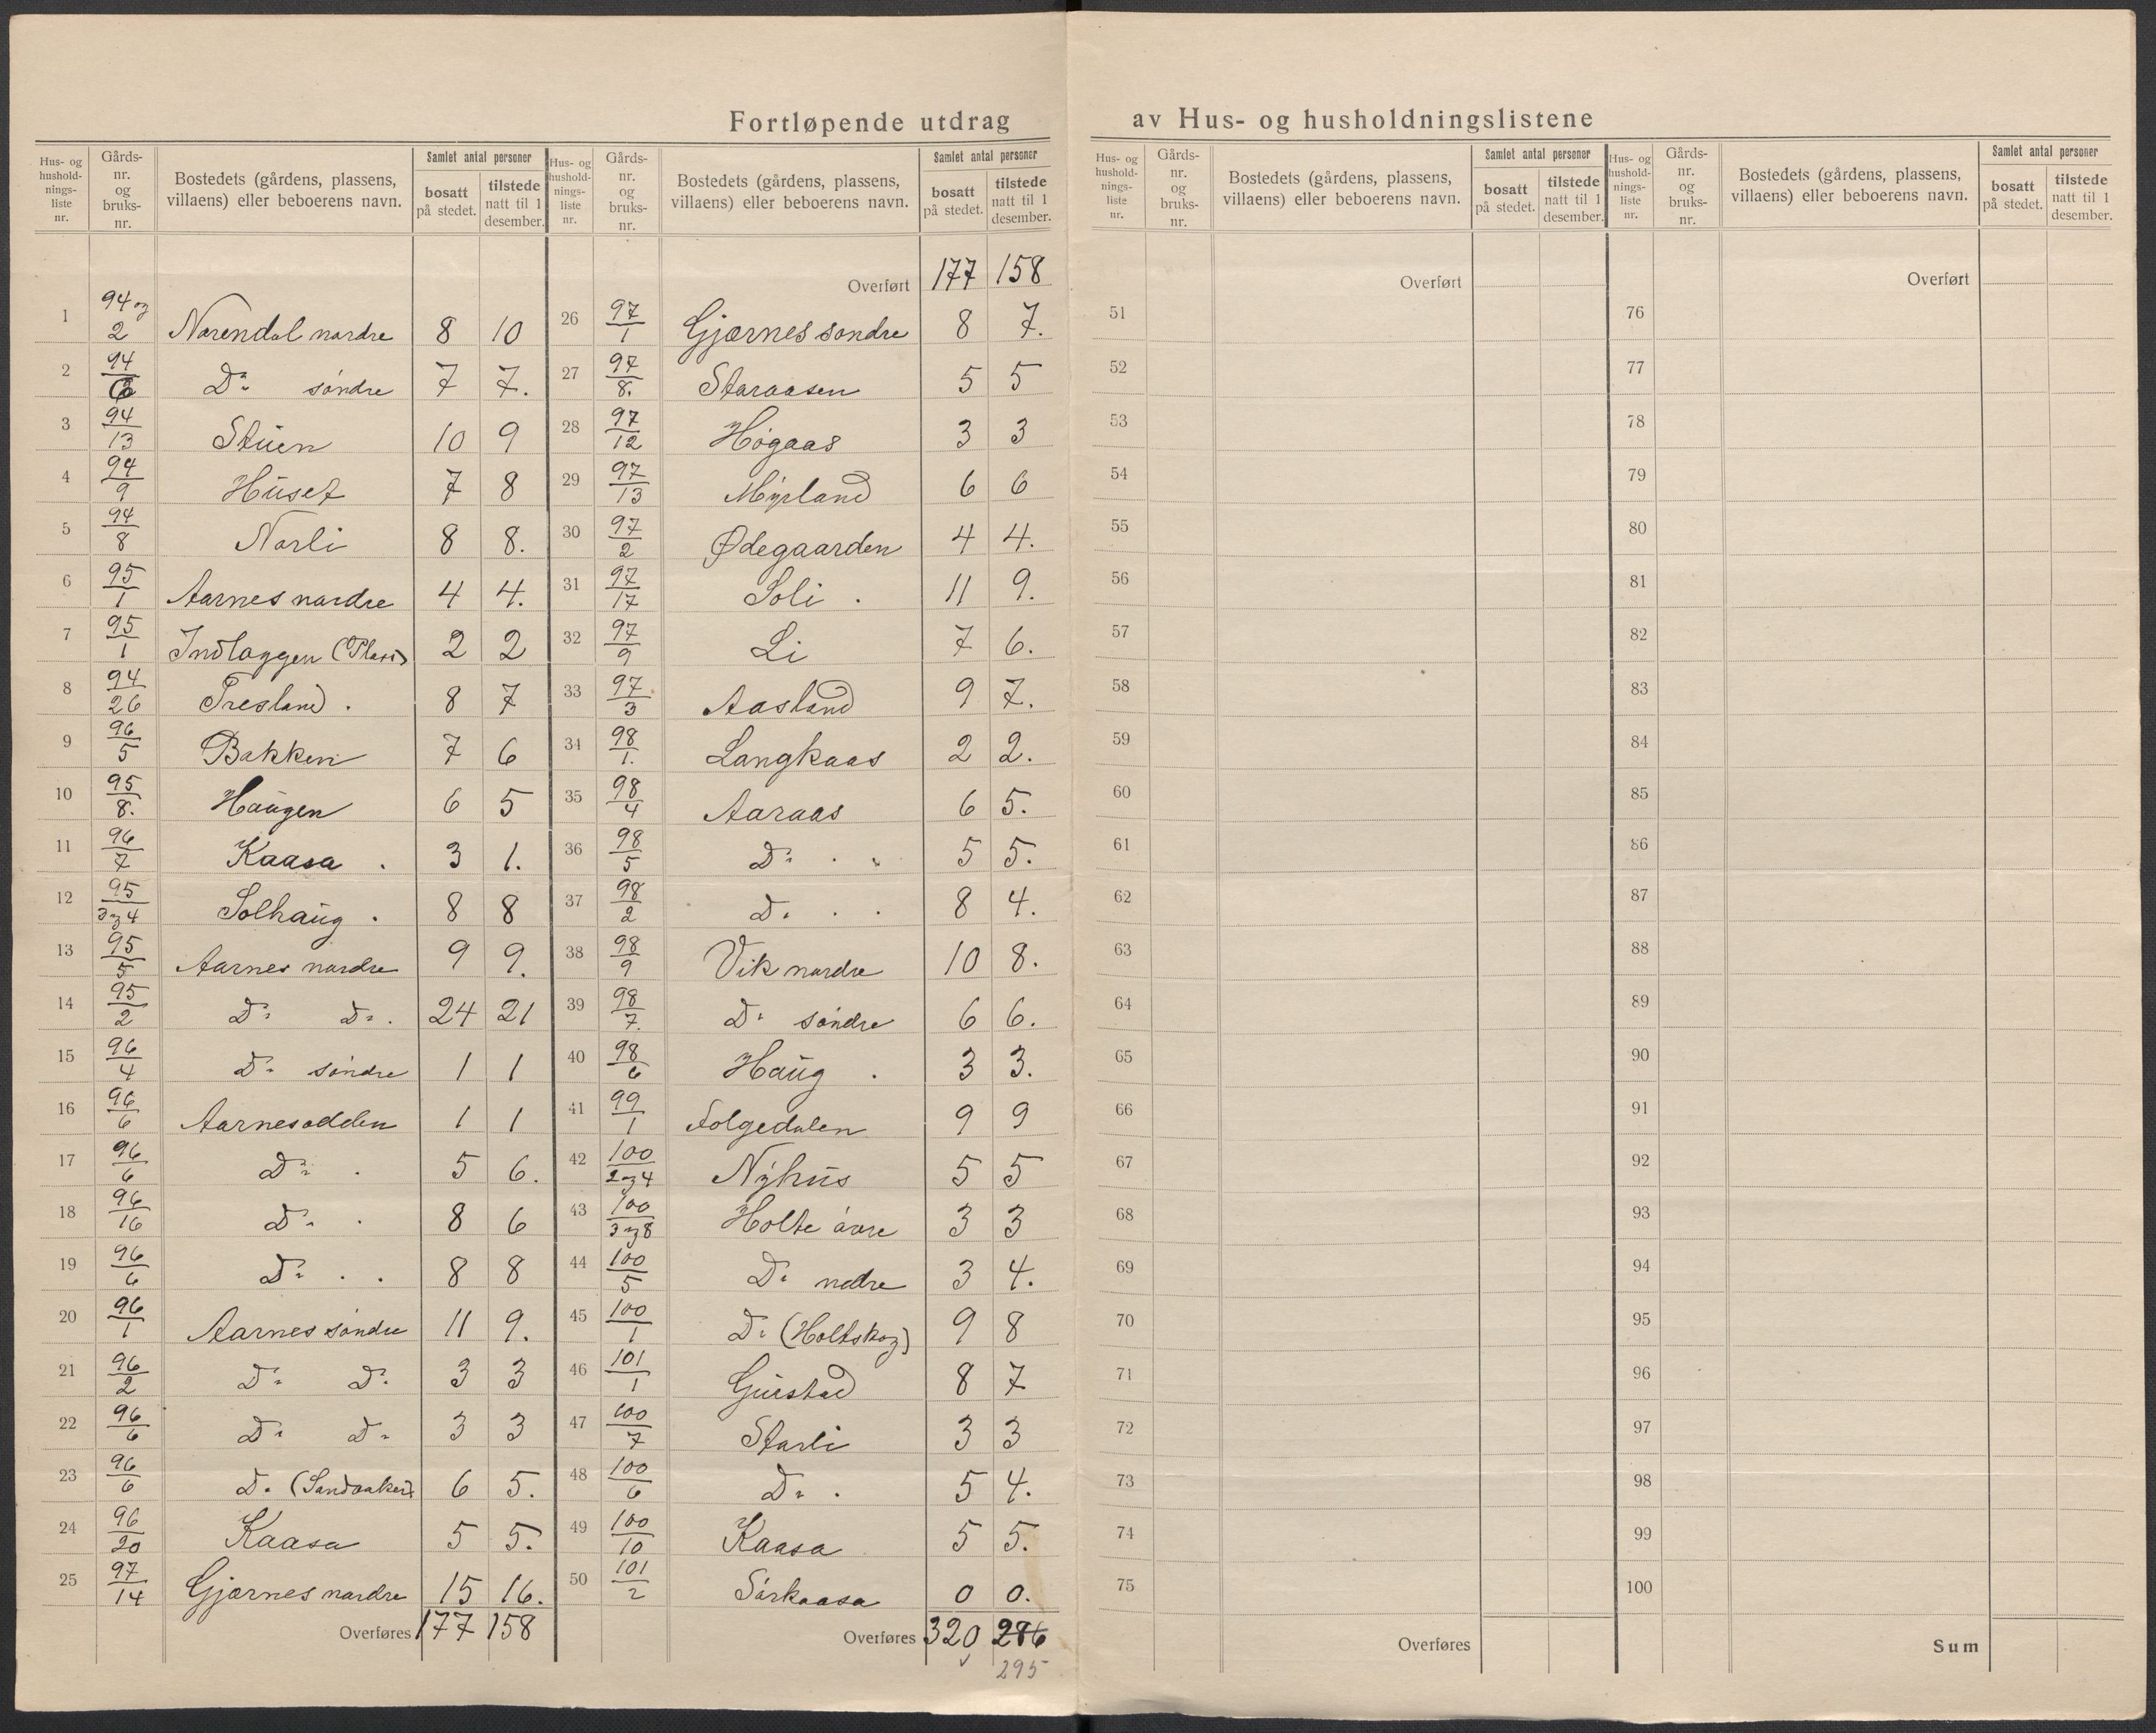 Fortløpende utdrag av Hus- og husholdningslistene
Hus- og husholdnings-liste nr. | Gårds-nr. og bruks-nr. | Bostedets (gårdens, plassens, villaens) eller beboerens navn. | Samlet antal personer | bosatt på stedet. | tilstede natt til 1 desember.
1 94 og 2 Norendal nordre 8 10
2 94/6 Do søndre 7 7.
3 94/13 Stuen 10 9
4 94/9 Huset 7 8
5 94/8 Norli 8 8.
6 95/1 Aarnes nordre 4 4.
7 95/1 Indlaggen (Plass) 2 2
8 94/26 Tresland. 8 7
9 96/5 Bakken 7 6
10 95/8. Haugen 6 5
11 96/7 Kaasa. 3 1.
12 95/3og4 Solhaug. 8 8
13 95/5 Aarnes nordre 9 9.
14 95/2 Do Do. 24 21
15 96/4 Do søndre 1 1
16 96/6 Aarnesodden 1 1
17 96/6 Do. 5 6.
18 96/16 Do. 8 6
19 96/6 Do.. 8 8
20 96/1 Aarnes søndre 11 9.
21 96/2 Do Do. 3 3
22 96/6 Do Do 3 3
23 96/6 Do (Sandaaker) 6 5.
24 96/20 Kaasa 5 5.
25 97/14 Gjernes nordre 15 16.
Overføres 177 158
Hus- og husholdnings-liste nr. | Gårds-nr. og bruks-nr. | Bostedets (gårdens, plassens, villaens) eller beboerens navn. | Samlet antal personer | bosatt på stedet. | tilstede natt til 1 desember.
Overført 177 158
26 97/1 Gjernes søndre 8 7.
27 97/8. Staraasen 5 5
28 97/12 Høgaas 3 3
29 97/13 Myrland 6 6
30 97/2 Ødegaarden 4 4.
31 97/17 Soli. 11 9.
32 97/9 Li 7 6.
33 97/3 Aasland 9 7.
34 98/1. Langkaas 2 2.
35 98/4 Aaraas 6 5.
36 98/5 Do.. 5 5.
37 98/2 Do.. 8 4.
38 98/9 Vik nordre 10 8.
39 98/7. Do søndre 6 6.
40 98/6 Haug. 3 3.
41 99/1 Folgedalen 9 9
42 100/2og4 Nyhus 5 5
43 100/3og8 Holte øvre 3 3
44 100/5 Do nedre 3 4.
45 100/1 Do (Holtskog) 9 8
46 101/1 Gurstad 8 7
47 100/7 Starli 3 3
48 100/6 Do. 5 4.
49 100/10 Kaasa 5 5.
50 101/2 Sørkaasa 0 0.
Overføres 320 286
295
Hus- og husholdnings-liste nr. | Gårds-nr. og bruks-nr. | Bostedets (gårdens, plassens, villaens) eller beboerens navn. | Samlet antal personer | bosatt på stedet. | tilstede natt til 1 desember.
Overført
51
52
53
54
55
56
57
58
59
60
61
62
63
64
65
66
67
68
69
70
71
72
73
74
75
Overføres
Hus- og husholdnings-liste nr. | Gårds-nr. og bruks-nr. | Bostedets (gårdens, plassens, villaens) eller beboerens navn. | Samlet antal personer | bosatt på stedet. | tilstede natt til 1 desember.
Overført
76
77
78
79
80
81
82
83
84
85
86
87
88
89
90
91
92
93
94
95
96
97
98
99
100
Sum